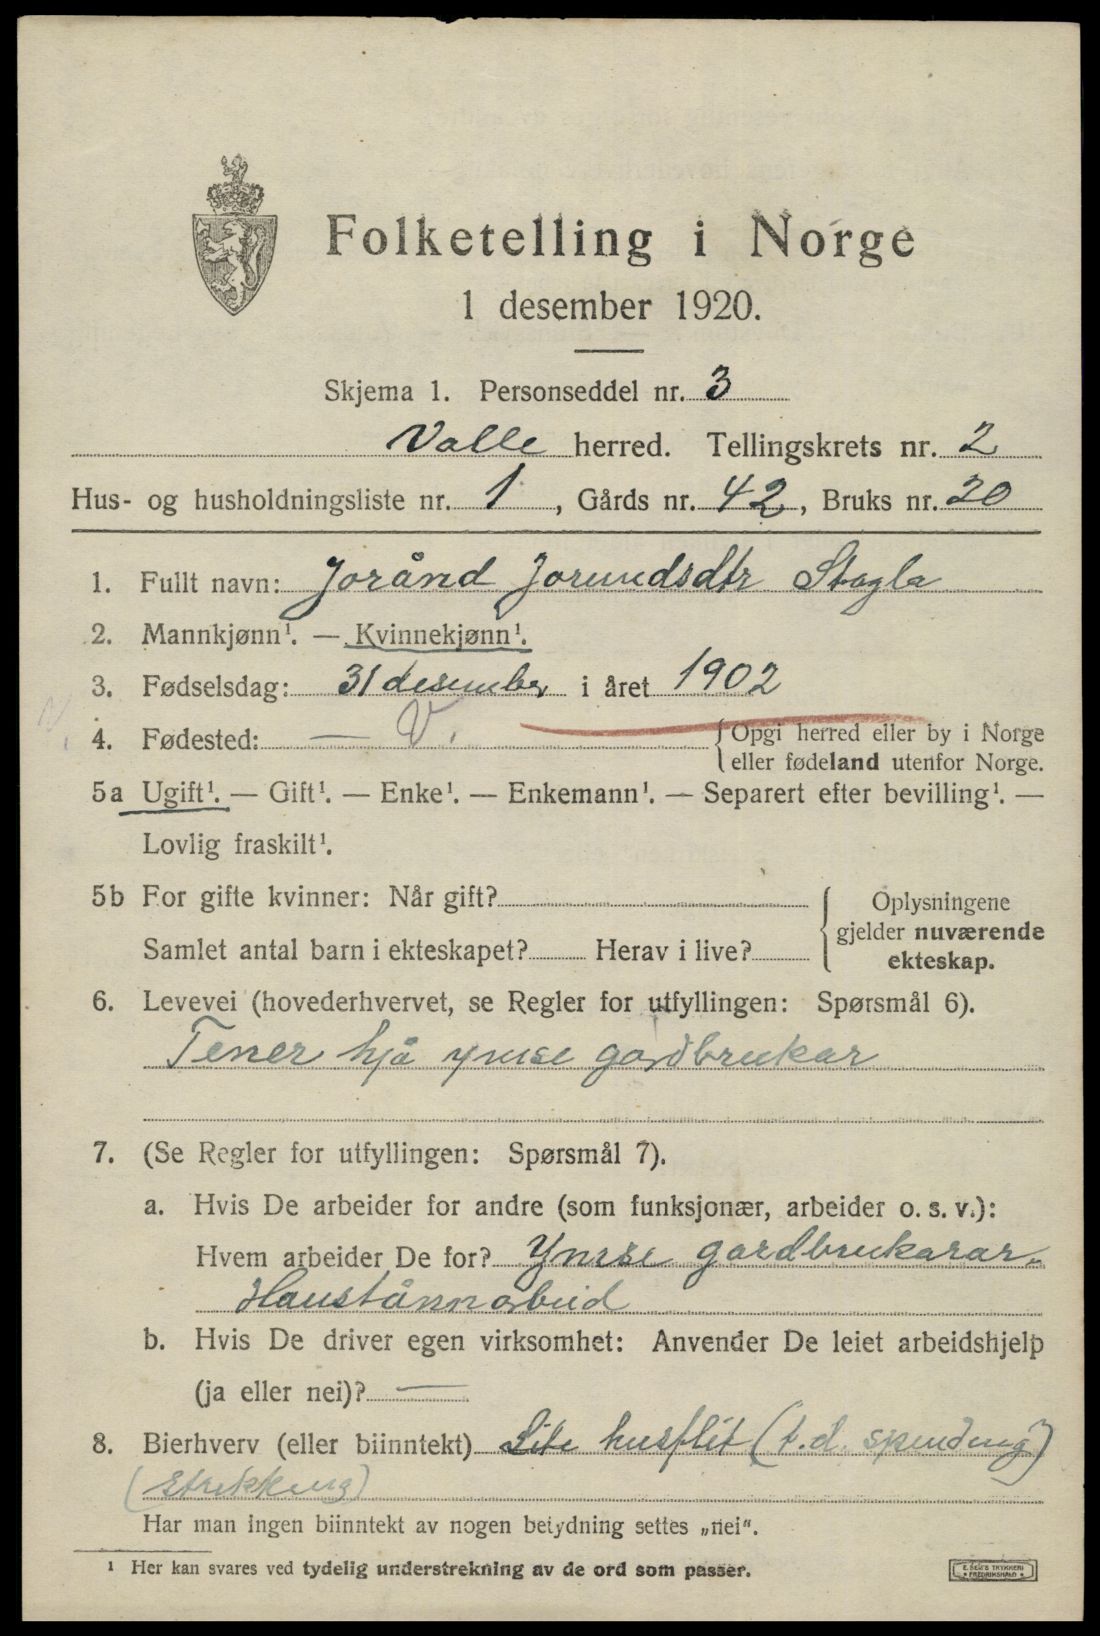 Folketelling i Norge
1 desember 1920.
Skjema 1. Personseddel nr. 3
Valle herred. Tellingskrets nr. 2
Hus- og husholdningsliste nr. 1, Gårds nr. 42, Bruks nr. 20
1. Fullt navn: Jorånd Jorundsdtr Stagla
2. Mannkjønn¹. — Kvinnekjønn¹.
3. Fødselsdag: 31 desember i året 1902
4. Fødested: — V. {Opgi herred eller by i Norge
eller fødeland utenfor Norge.
5a Ugift¹. — Gift¹. — Enke¹. — Enkemann¹. — Separert efter bevilling¹. —
Lovlig fraskilt¹.
5b For gifte kvinner: Når gift?
Samlet antal barn i ekteskapet? Herav i live?
Oplysningene
gjelder nuværende
ekteskap.
6. Levevei (hovederhvervet, se Regler for utfyllingen: Spørsmål 6).
Tener hjå ymse gardbrukar
7. (Se Regler for utfyllingen: Spørsmål 7).
a. Hvis De arbeider for andre (som funksjonær, arbeider o. s. v.):
Hvem arbeider De for? Ymse gardbrukarar.
Haustånnarbeid
b. Hvis De driver egen virksomhet: Anvender De leiet arbeidshjelp
(ja eller nei)? —
8. Bierhverv (eller biinntekt) Lite husflit (t.d. spinding)
(strikking)
Har man ingen biinntekt av nogen betydning settes „nei“.
¹ Her kan svares ved tydelig understrekning av de ord som passer.
E. SEM'S TRYKKERI
FREDRIKSHALD